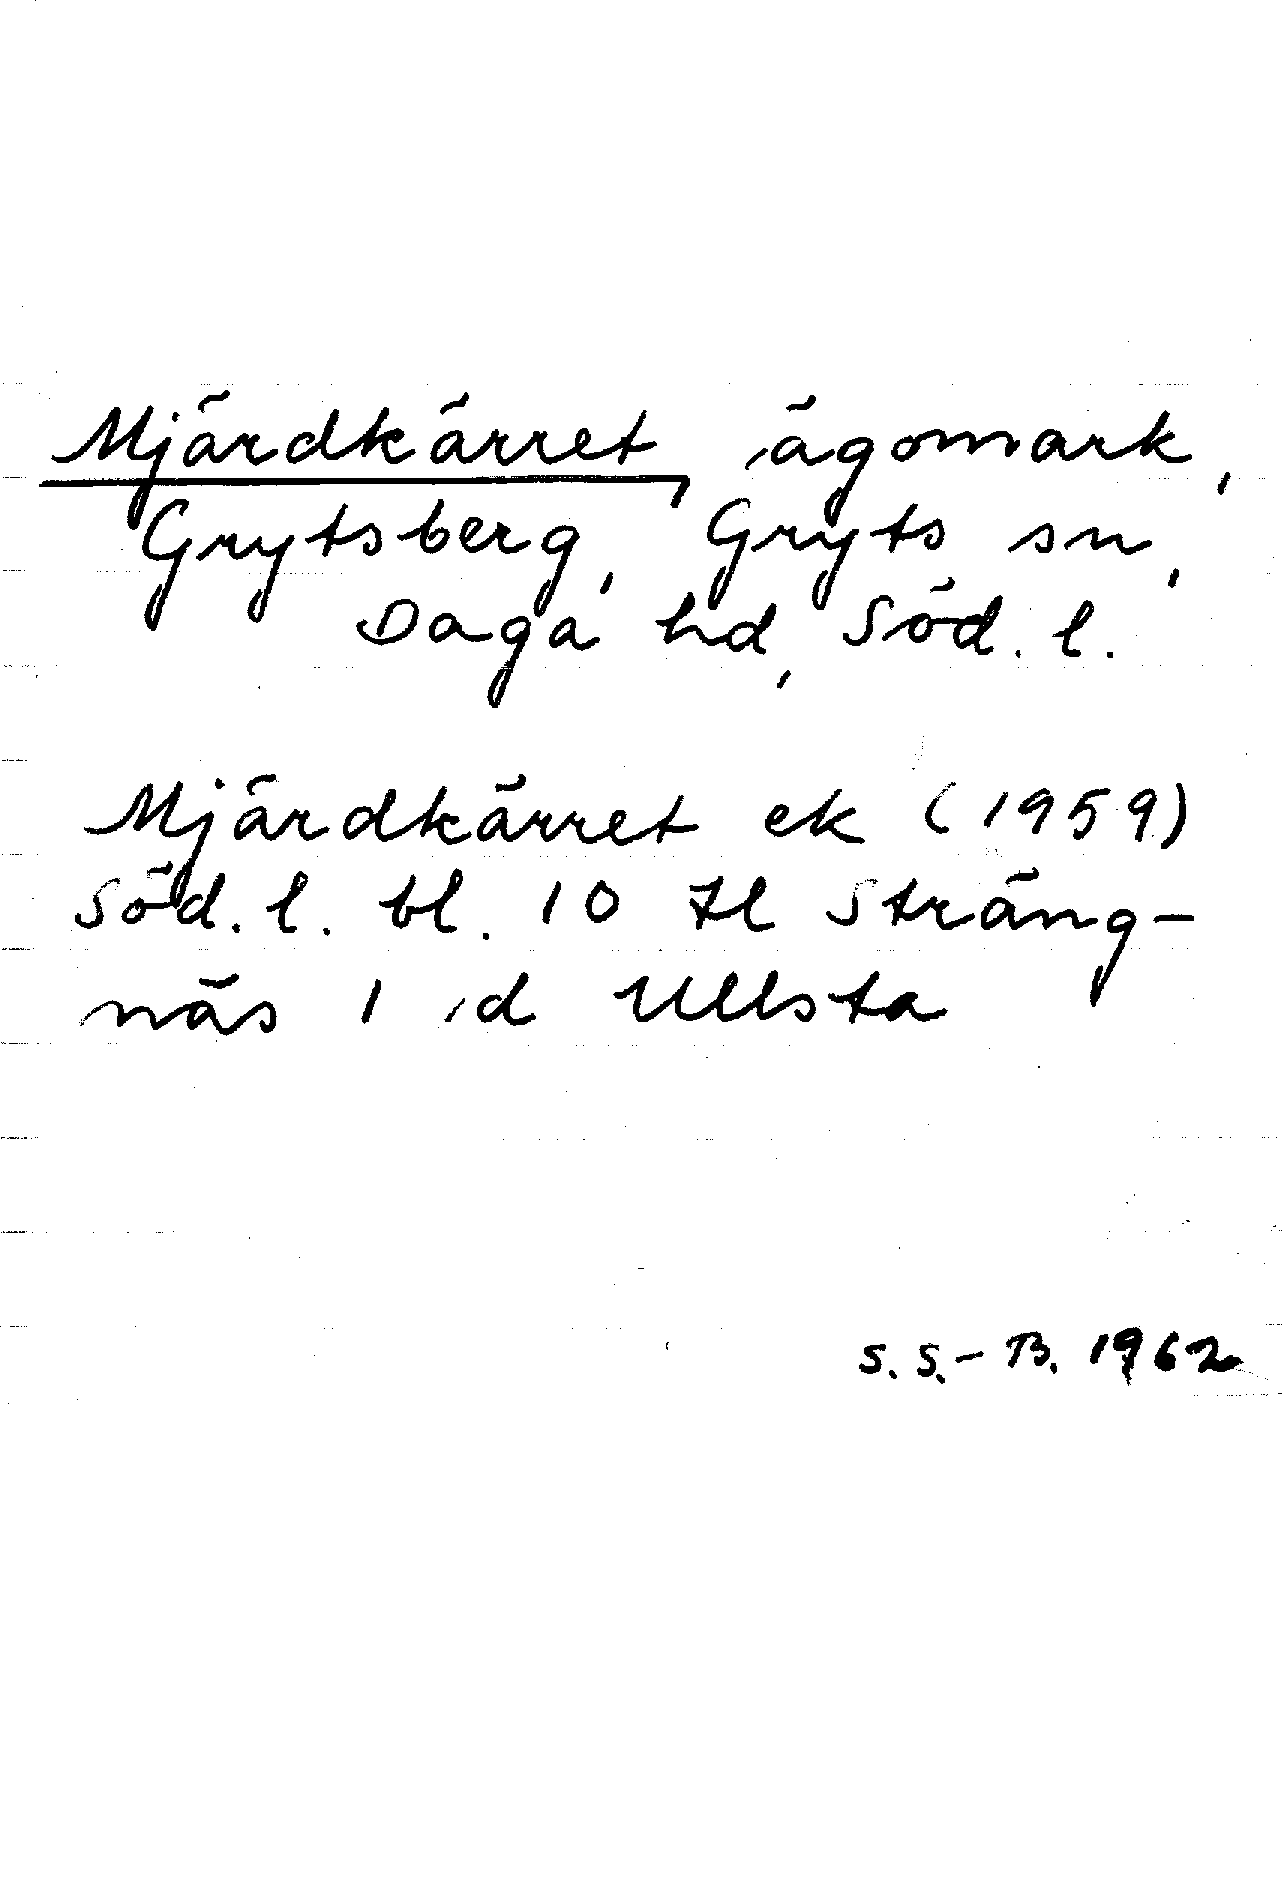 Mjärdkärret, ägomark,
Grytsberg, Gryts sn,
Daga hd, Söd. l.
Mjärdkärret ek (1959)
Söd. l. bl. 10 Il Sträng-
näs 1 d Ullsta
S. S.-B. 1962